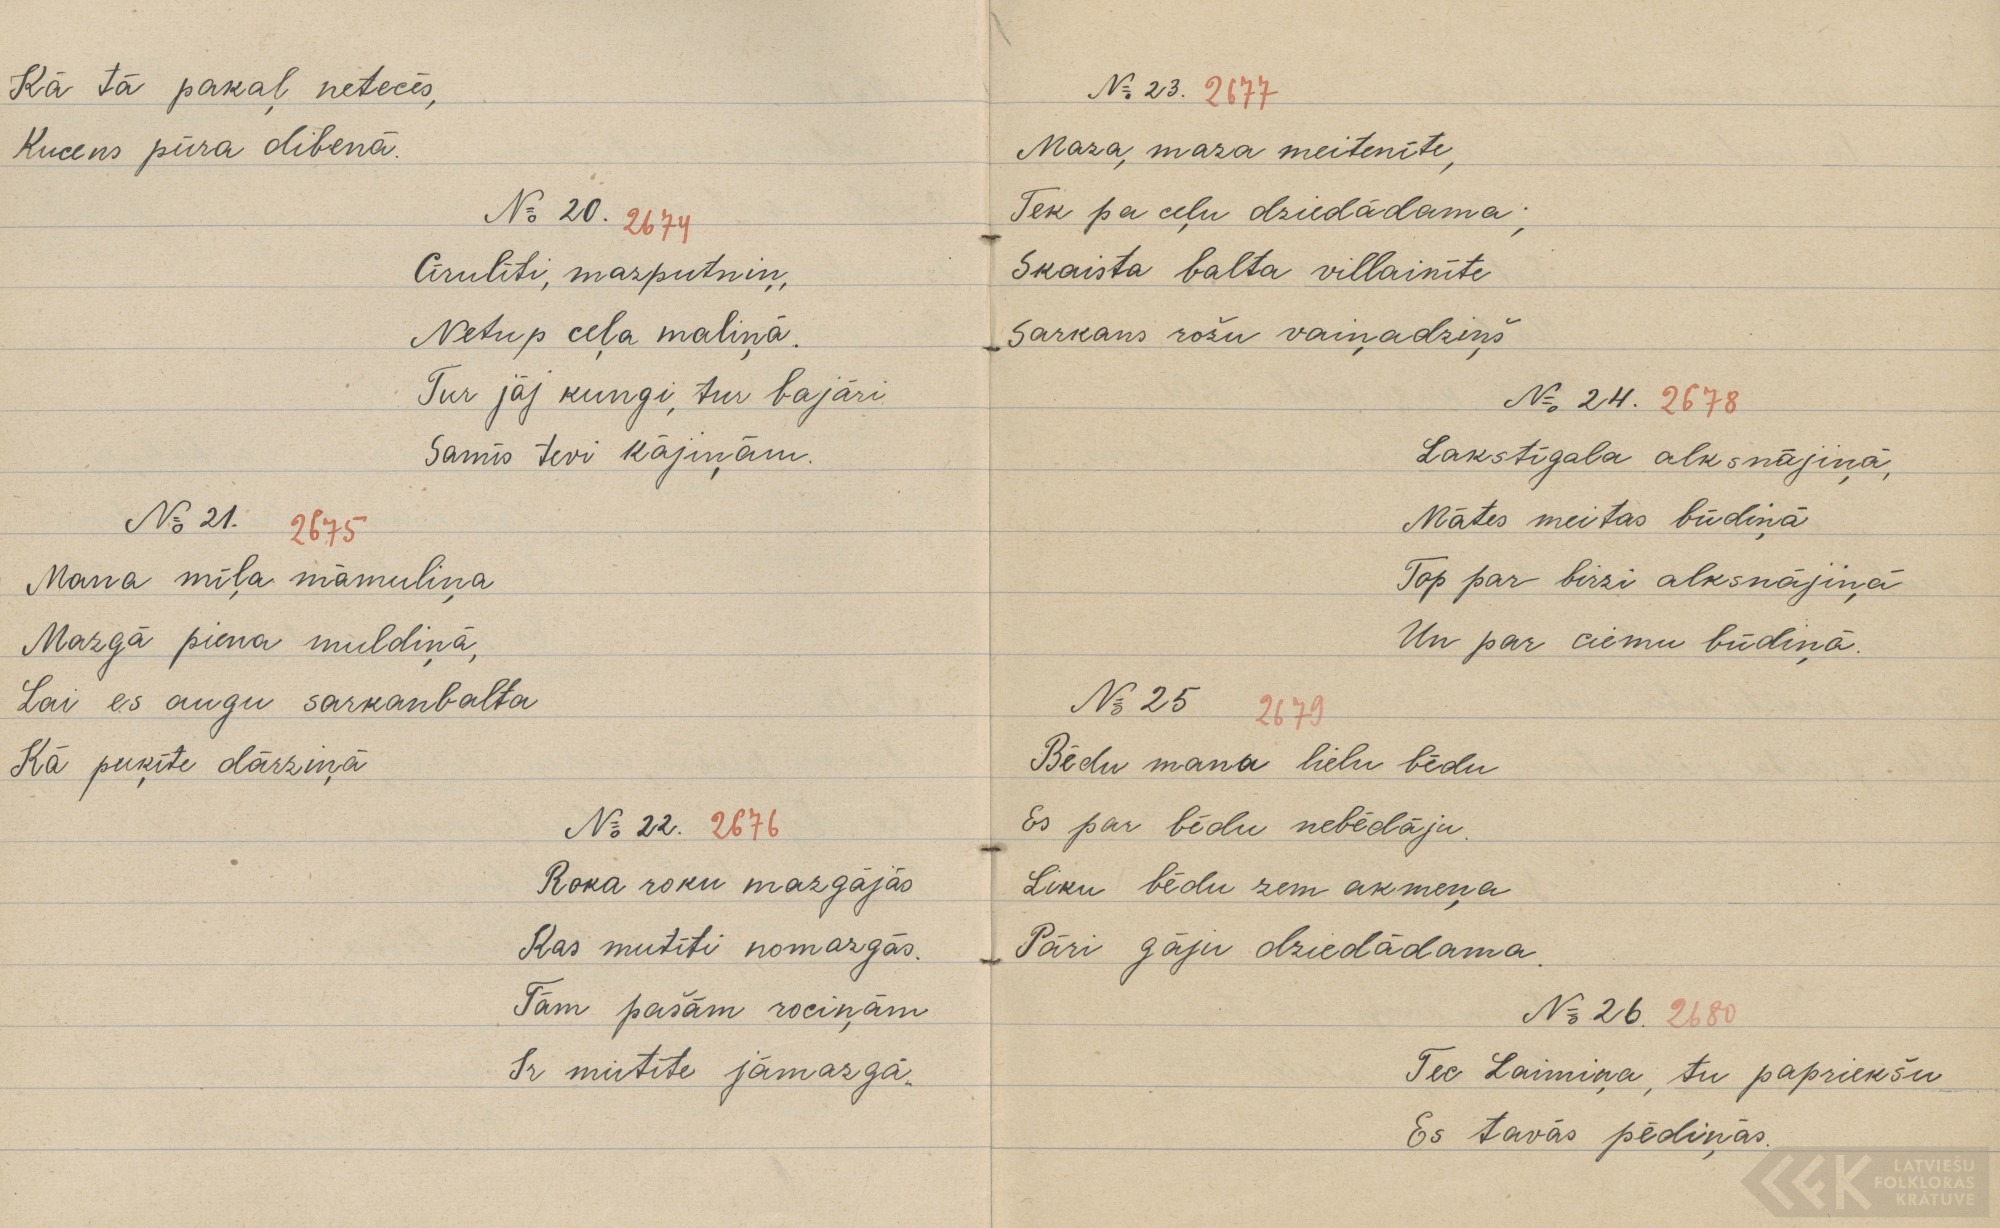 Kā tā pakaļ netecēs,
Kucens pūra dibenā.
№ 20. 2674
Cīrulīti, mazputniņ,
Netup ceļa maliņā.
Tur jāj kungi, tur bajāri
Samīs tevi kājiņām.
№ 21. 2675
Mana mīļa māmuliņa
Mazgā piena muldiņā,
Lai es augu sarkanbalta
Kā puķīte dārziņā
№ 22. 2676
Roka roku mazgājās
Kas mutīti nomazgās.
Tām pašām rociņām
Ir mutīte jāmazgā.
№ 23. 2677
Maza, maza meitenīte,
Tek pa ceļu dziedādama;
Skaista balta villainīte
Sarkans rožu vaiņadziņš
№ 24. 2678
Lakstīgala alksnājiņā,
Mātes meitas būdiņā
Top par birzi alksnājiņā
Un par ciemu būdiņā.
№ 25 2679
Bēdu mana lielu bēdu
Es par bēdu nebēdāju.
Liku bēdu zem akmeņa
Pāri gāju dziedādama.
№ 26. 2680
Tec Laimiņa, tu papriekšu
Es tavās pēdiņās.
LATVIEŠU
FOLKLORAS
KRĀTUVE